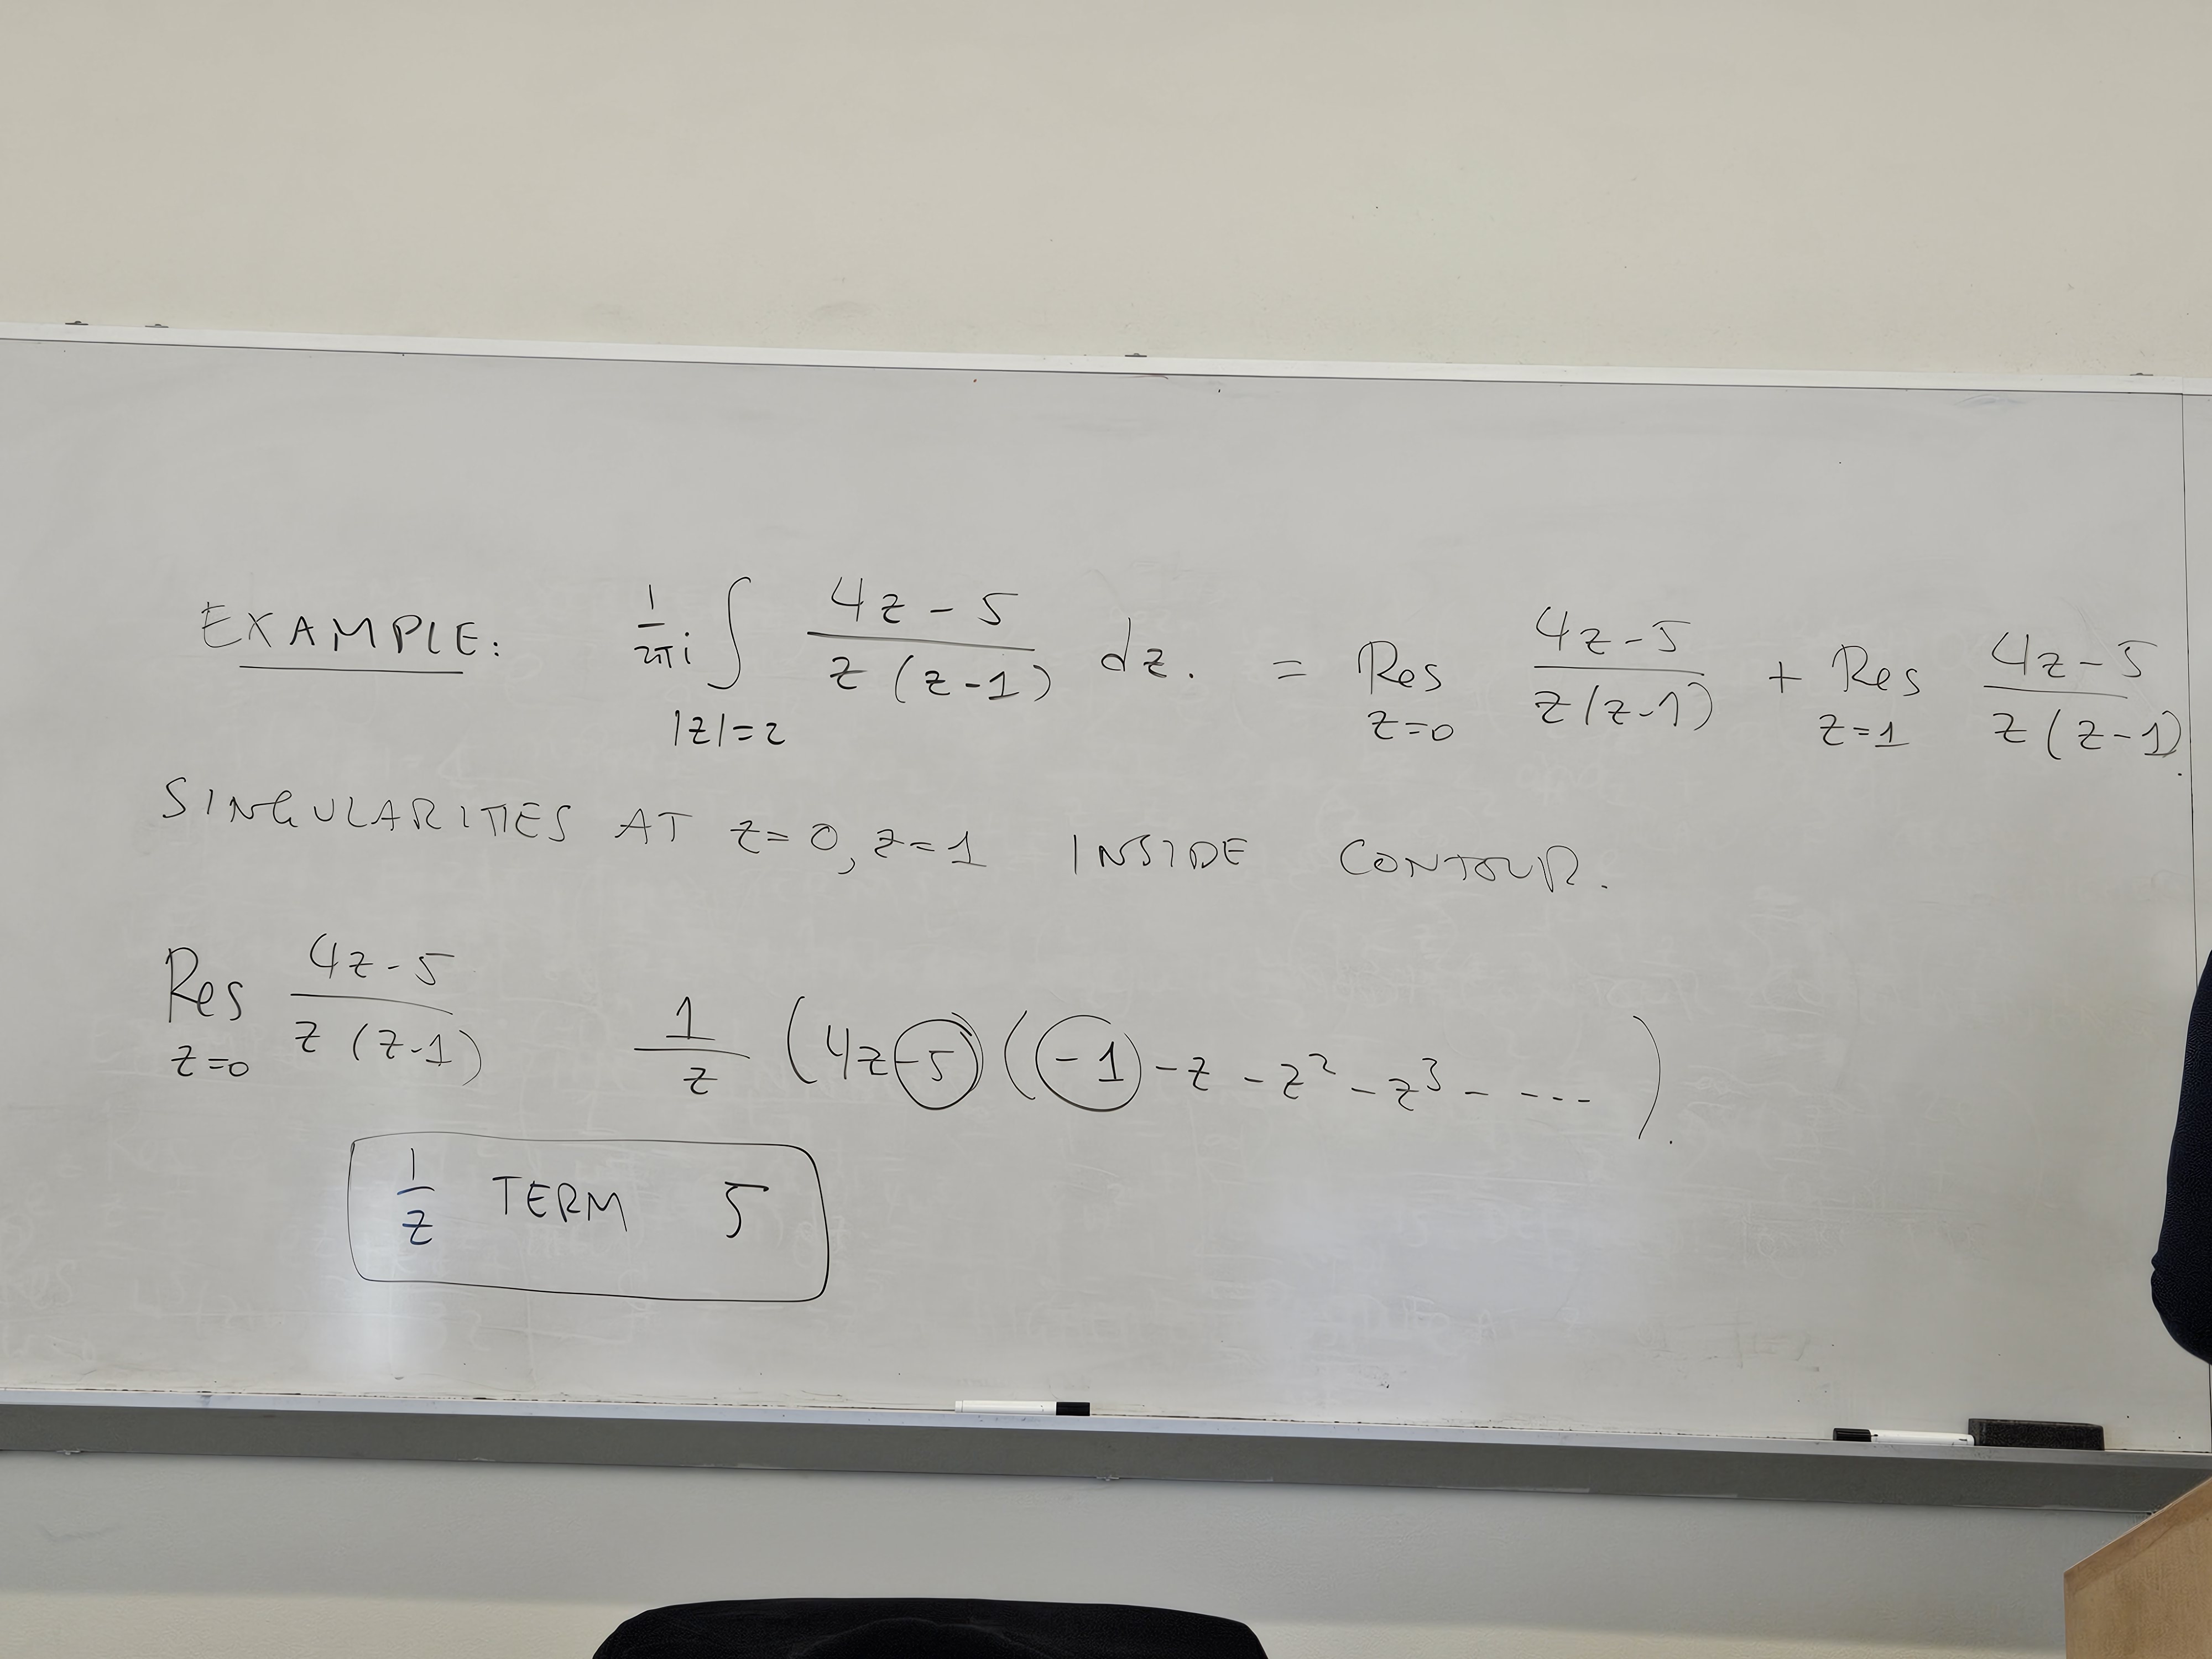 EXAMPLE: 1/2πi ∫_{|z|=2} (4z-5)/(z(z-1)) dz. = Res_{z=0} (4z-5)/(z(z-1)) + Res_{z=1} (4z-5)/(z(z-1)).
SINGULARITIES AT z=0, z=1 INSIDE CONTOUR.
Res_{z=0} (4z-5)/(z(z-1)) 1/z (4z-5)(-1-z-z²-z³- ----).
1/z TERM 5